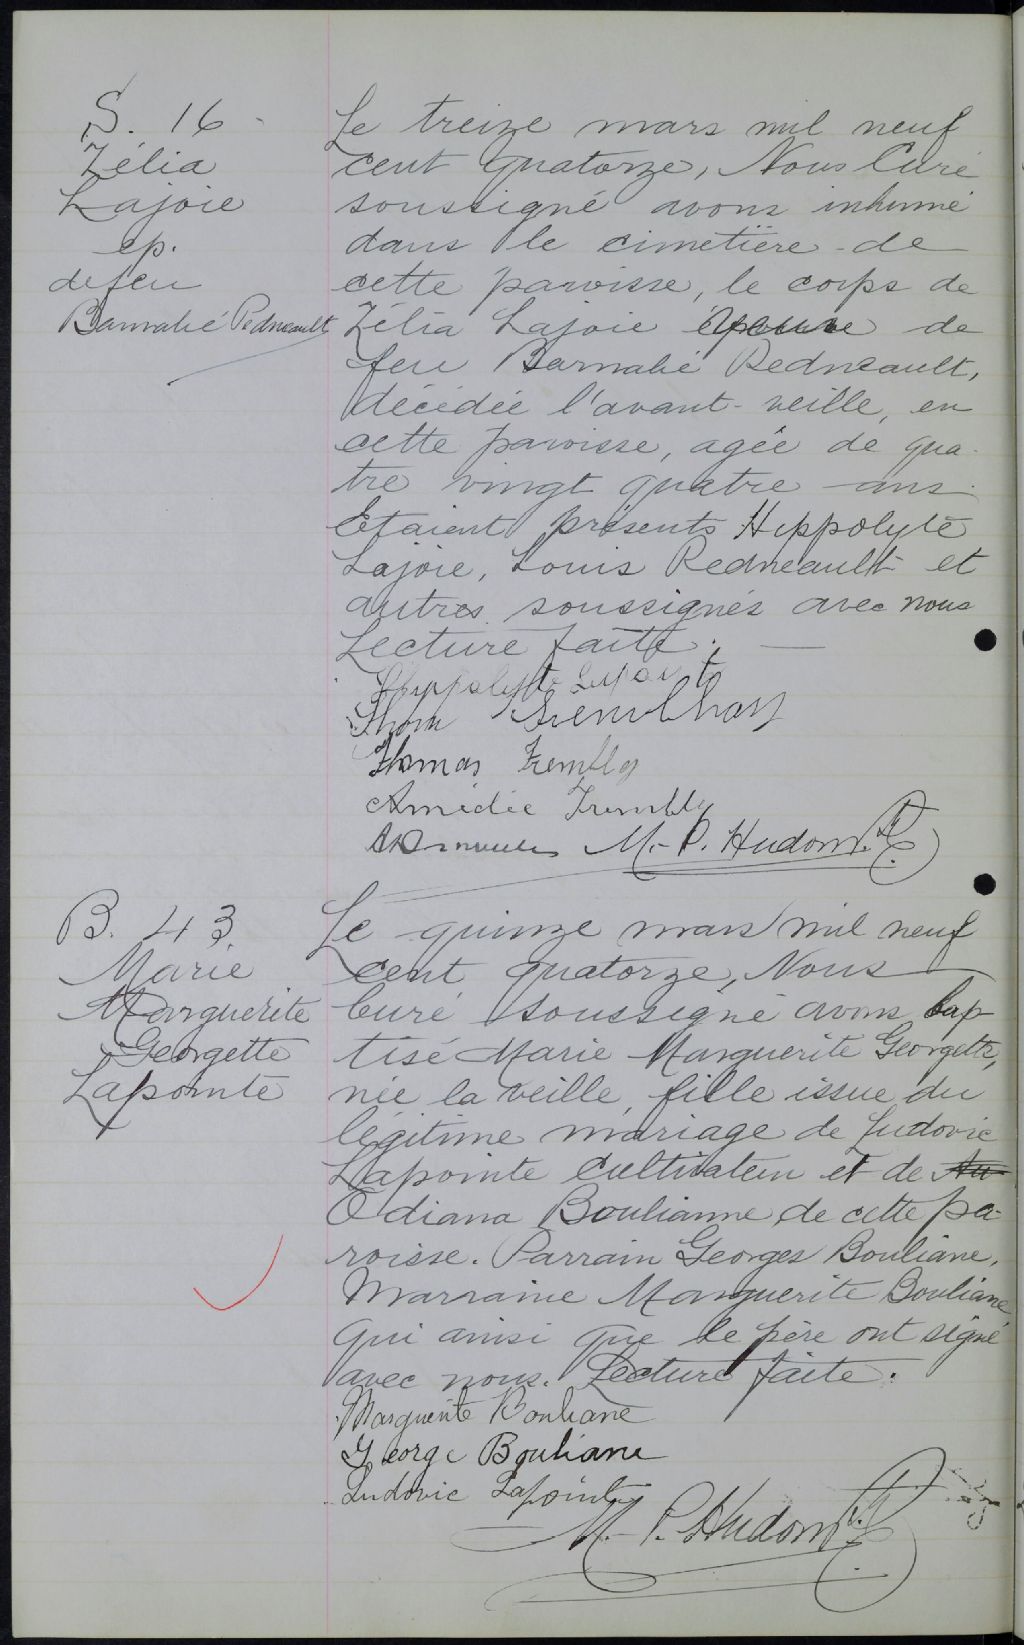 S. 16 -
Zélia
Lajoie
ep.
defeu
Barnabé Pedneault
Le treize mars mil neuf
cent quatorze, Nous Curé
soussigné avons inhumé
dans le cimetière de
cette paroisse, le corps de
Zélia Lajoie épouse de
feu Barnabé Pedneault,
décédée l'avant-veille, en
cette paroisse, agée de qua-
tre vingt quatre ans.
Etaient présents Hippolyte
Lajoie, Louis Pedneault et
autres soussignés avec nous
Lecture faite.
Hyppolyte
Thom
Thomas Trembly
Amédée Trembly
M.-P. Hudon, Ptre
B. 43.
Marie
Marguerite
Georgette
Lapointe
Le quinze mars mil neuf
cent quatorze, Nous
Curé soussigné avons bap-
tisé Marie Marguerite Georgette,
née la veille, fille issue du
légitime mariage de Ludovic
Lapointe cultivateur et de Au
Odiana Boulianne de cette pa-
roisse. Parrain Georges Bouliane,
Marraine Marguerite Bouliane
qui ainsi que le père ont signé
avec nous. Lecture faite.
Marguerite Bouliane
George Bouliane
Ludovic Lapointe
M.-P. Hudon, Ptre